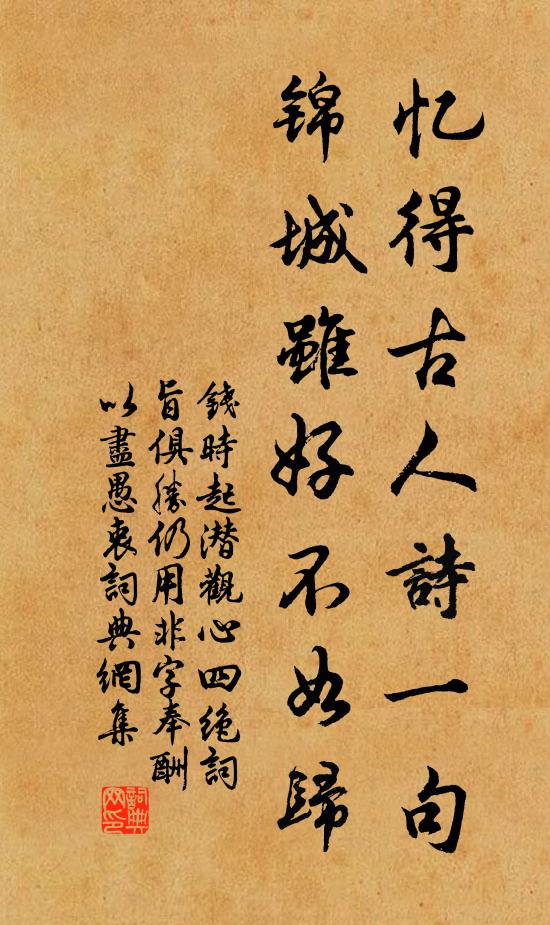 忆得古人詩一句
錦城雖好不如歸
錢時起潜觀心四絶詞
旨俱勝仍用非字奉酬
以盡愚衷詞典網集
詞典網印